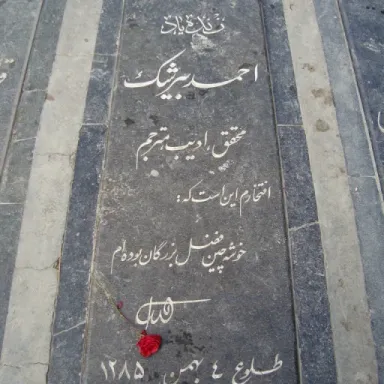 زنده یاد
احمد بیرشک
محقق، ادیب، مترجم
افتخارم این است که:
خوشه چین فضل بزرگان بوده ام
طلوع ۴ بهمن ۱۲۸۵